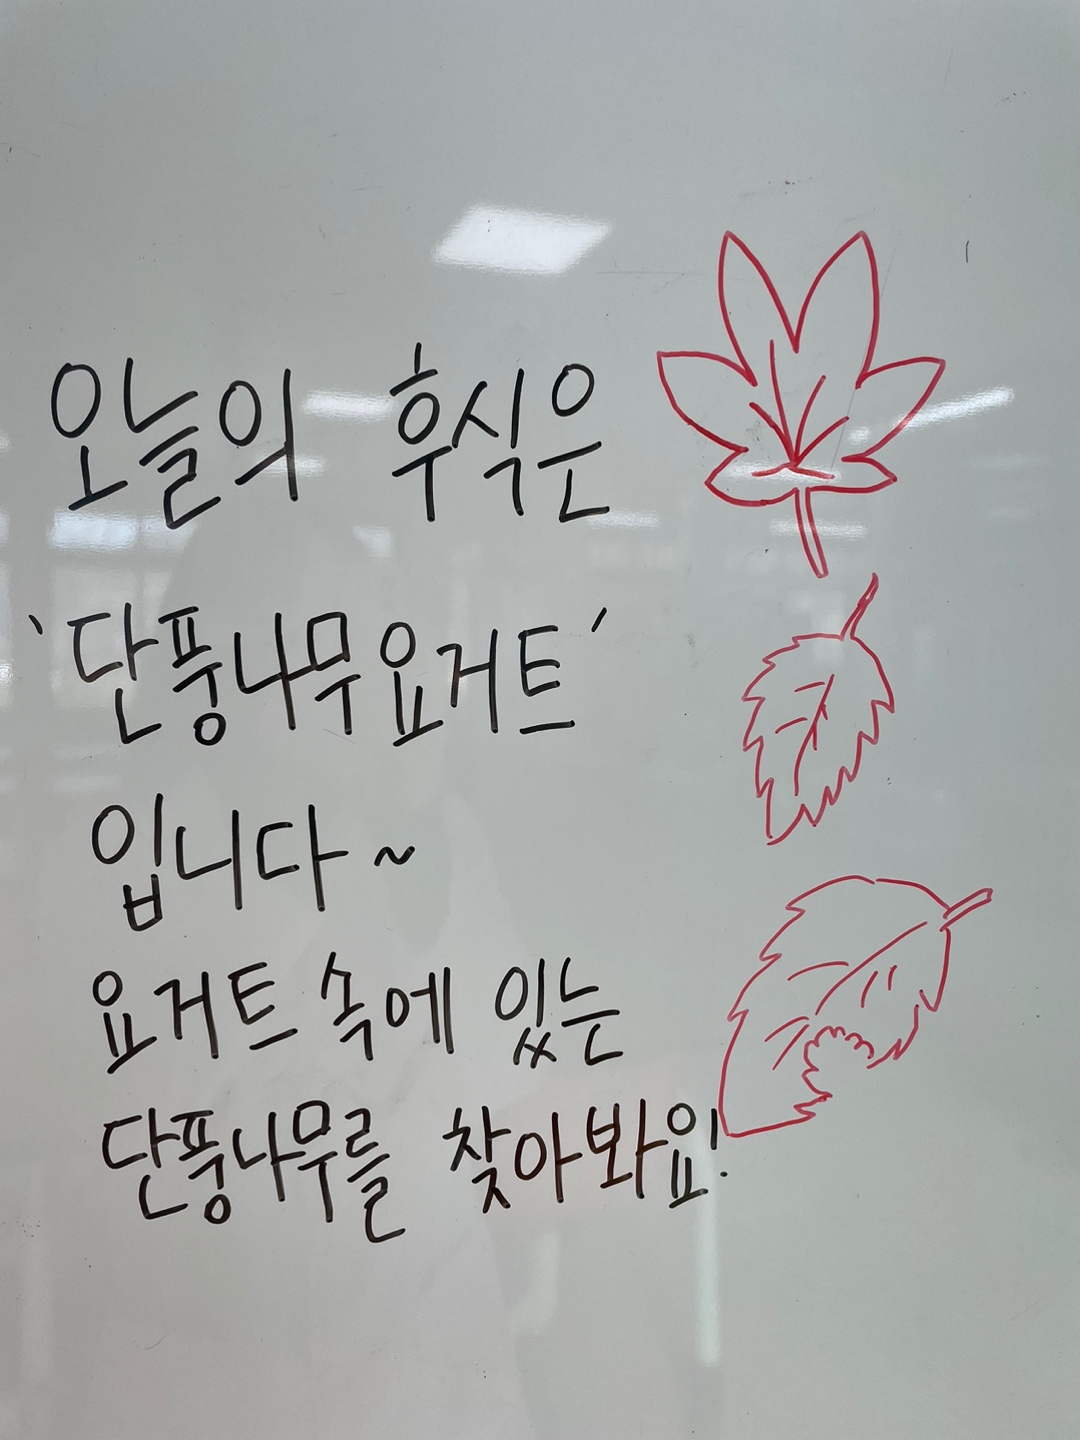 오늘의 후식은
'단풍나무요거트'
입니다~
요거트 속에 있는
단풍나무를 찾아봐요!